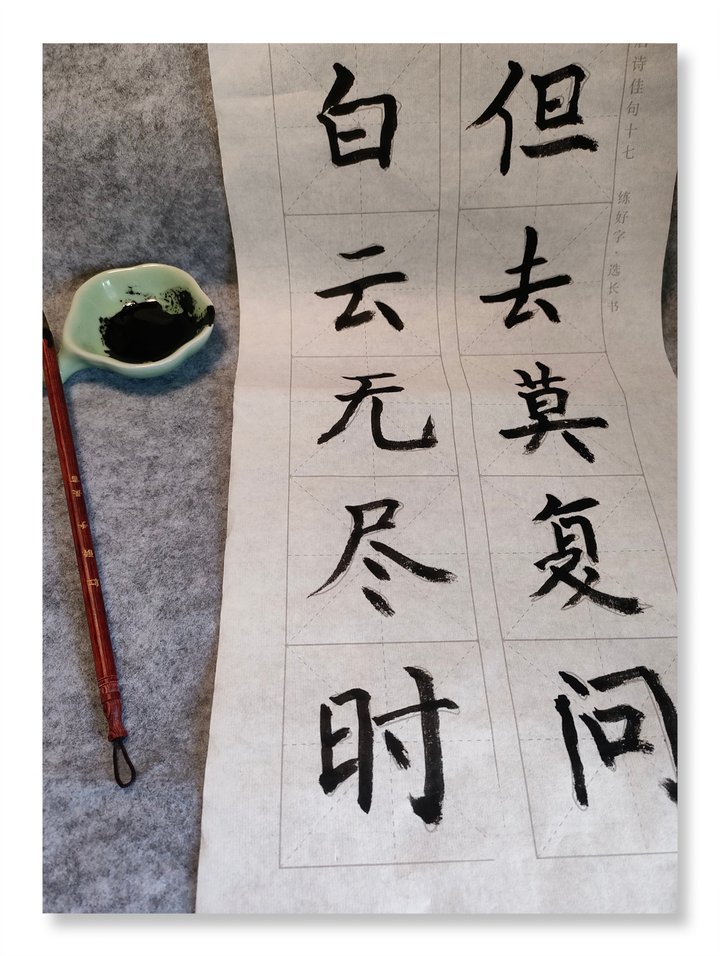 诗佳句十七 练好字·选长书
但去莫复问
白云无尽时